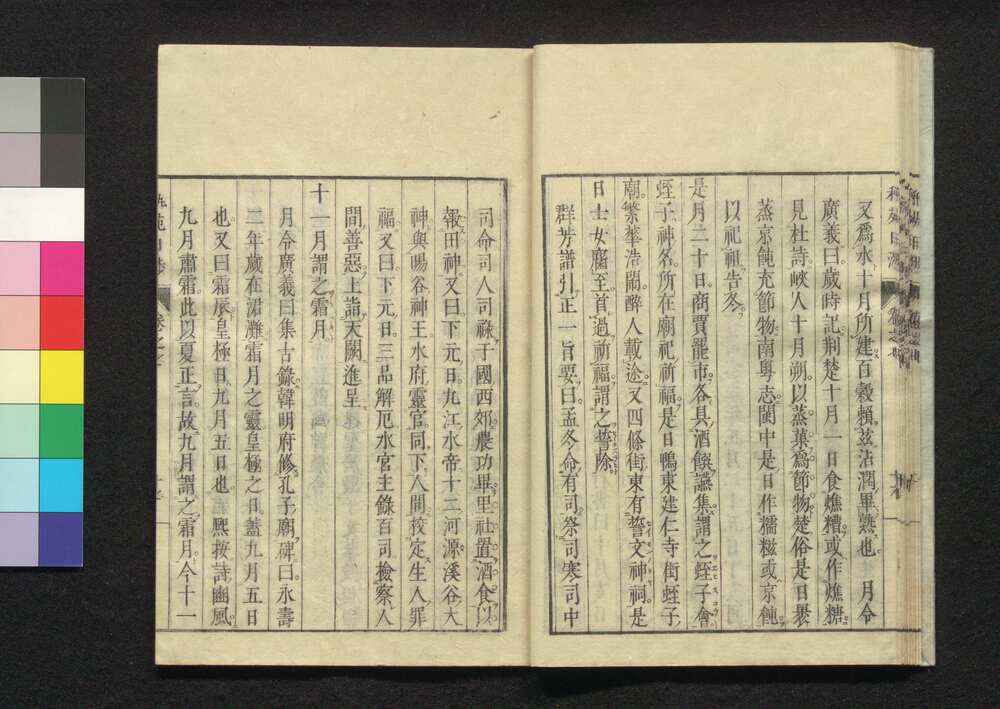 又爲水十月所建百穀賴茲沾潤畢熟也　月令
廣義曰歲時記荆楚十月一日食燋糟或作燋糖
見杜詩峽人十月朔以蒸菓爲節物楚俗是日褁
蒸京飩充節物南粤志閩中是日作糯糍或京飩
以祀祖告冬
是月二十日商賈罷市各具酒饌讌集謂之蛭子會
蛭子神名所在廟祀祈福是日鴨東建仁寺街蛭子
廟繁華浩閙醉人載途又四條街東有誓文神祠是
日士女麕至首過祈福謂之誓除
群芳譜引正一旨要曰孟冬命有司祭司寒司中
司命司人司祿于國西郊農功畢里社置酒食以
報田神又曰下元日九江水帝十二河源溪谷大
神與暘谷神王水府靈官同下人間校定生人罪
福又曰下元日三品解厄水官主錄百司檢察人
間善惡上詣天闕進呈
十一月謂之霜月
月令廣義曰集古錄韓明府修孔子廟碑曰永壽
二年歲在涒灘霜月之靈皇極之日蓋九月五日
也又曰霜辰皇極日九月五日也　熈按詩豳風
九月肅霜此以夏正言故九月謂之霜月今十一